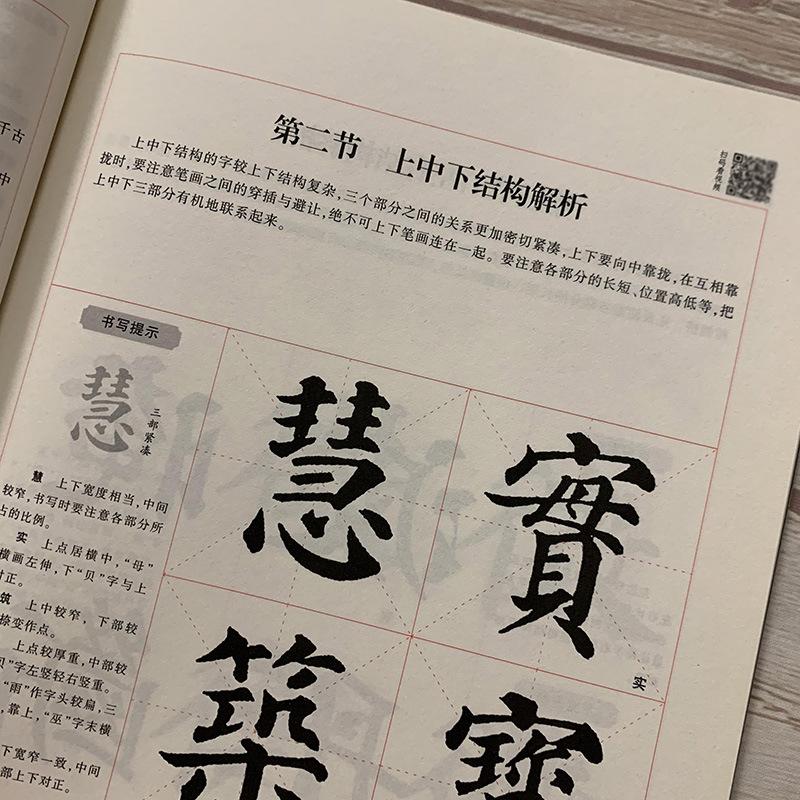 千古
中
扫码看视频
第二节 上中下结构解析
上中下结构的字较上下结构复杂,三个部分之间的关系更加密切紧凑,上下要向中靠拢,在互相靠
拢时,要注意笔画之间的穿插与避让,绝不可上下笔画连在一起。要注意各部分的长短、位置高低等,把
上中下三部分有机地联系起来。
书写提示
慧
三部紧凑
慧 上下宽度相当,中间
较窄,书写时要注意各部分所
占的比例。
实 上点居横中,“母”
横画左伸,下“贝”字与上
对正。
筑 上中较窄,下部较
捺变作点。
上点较厚重,中部较
贝”字左竖轻右竖重。
“雨”作字头较扁,三
,靠上,“巫”字末横
下宽窄一致,中间
部上下对正。
慧 實
实
築 寶